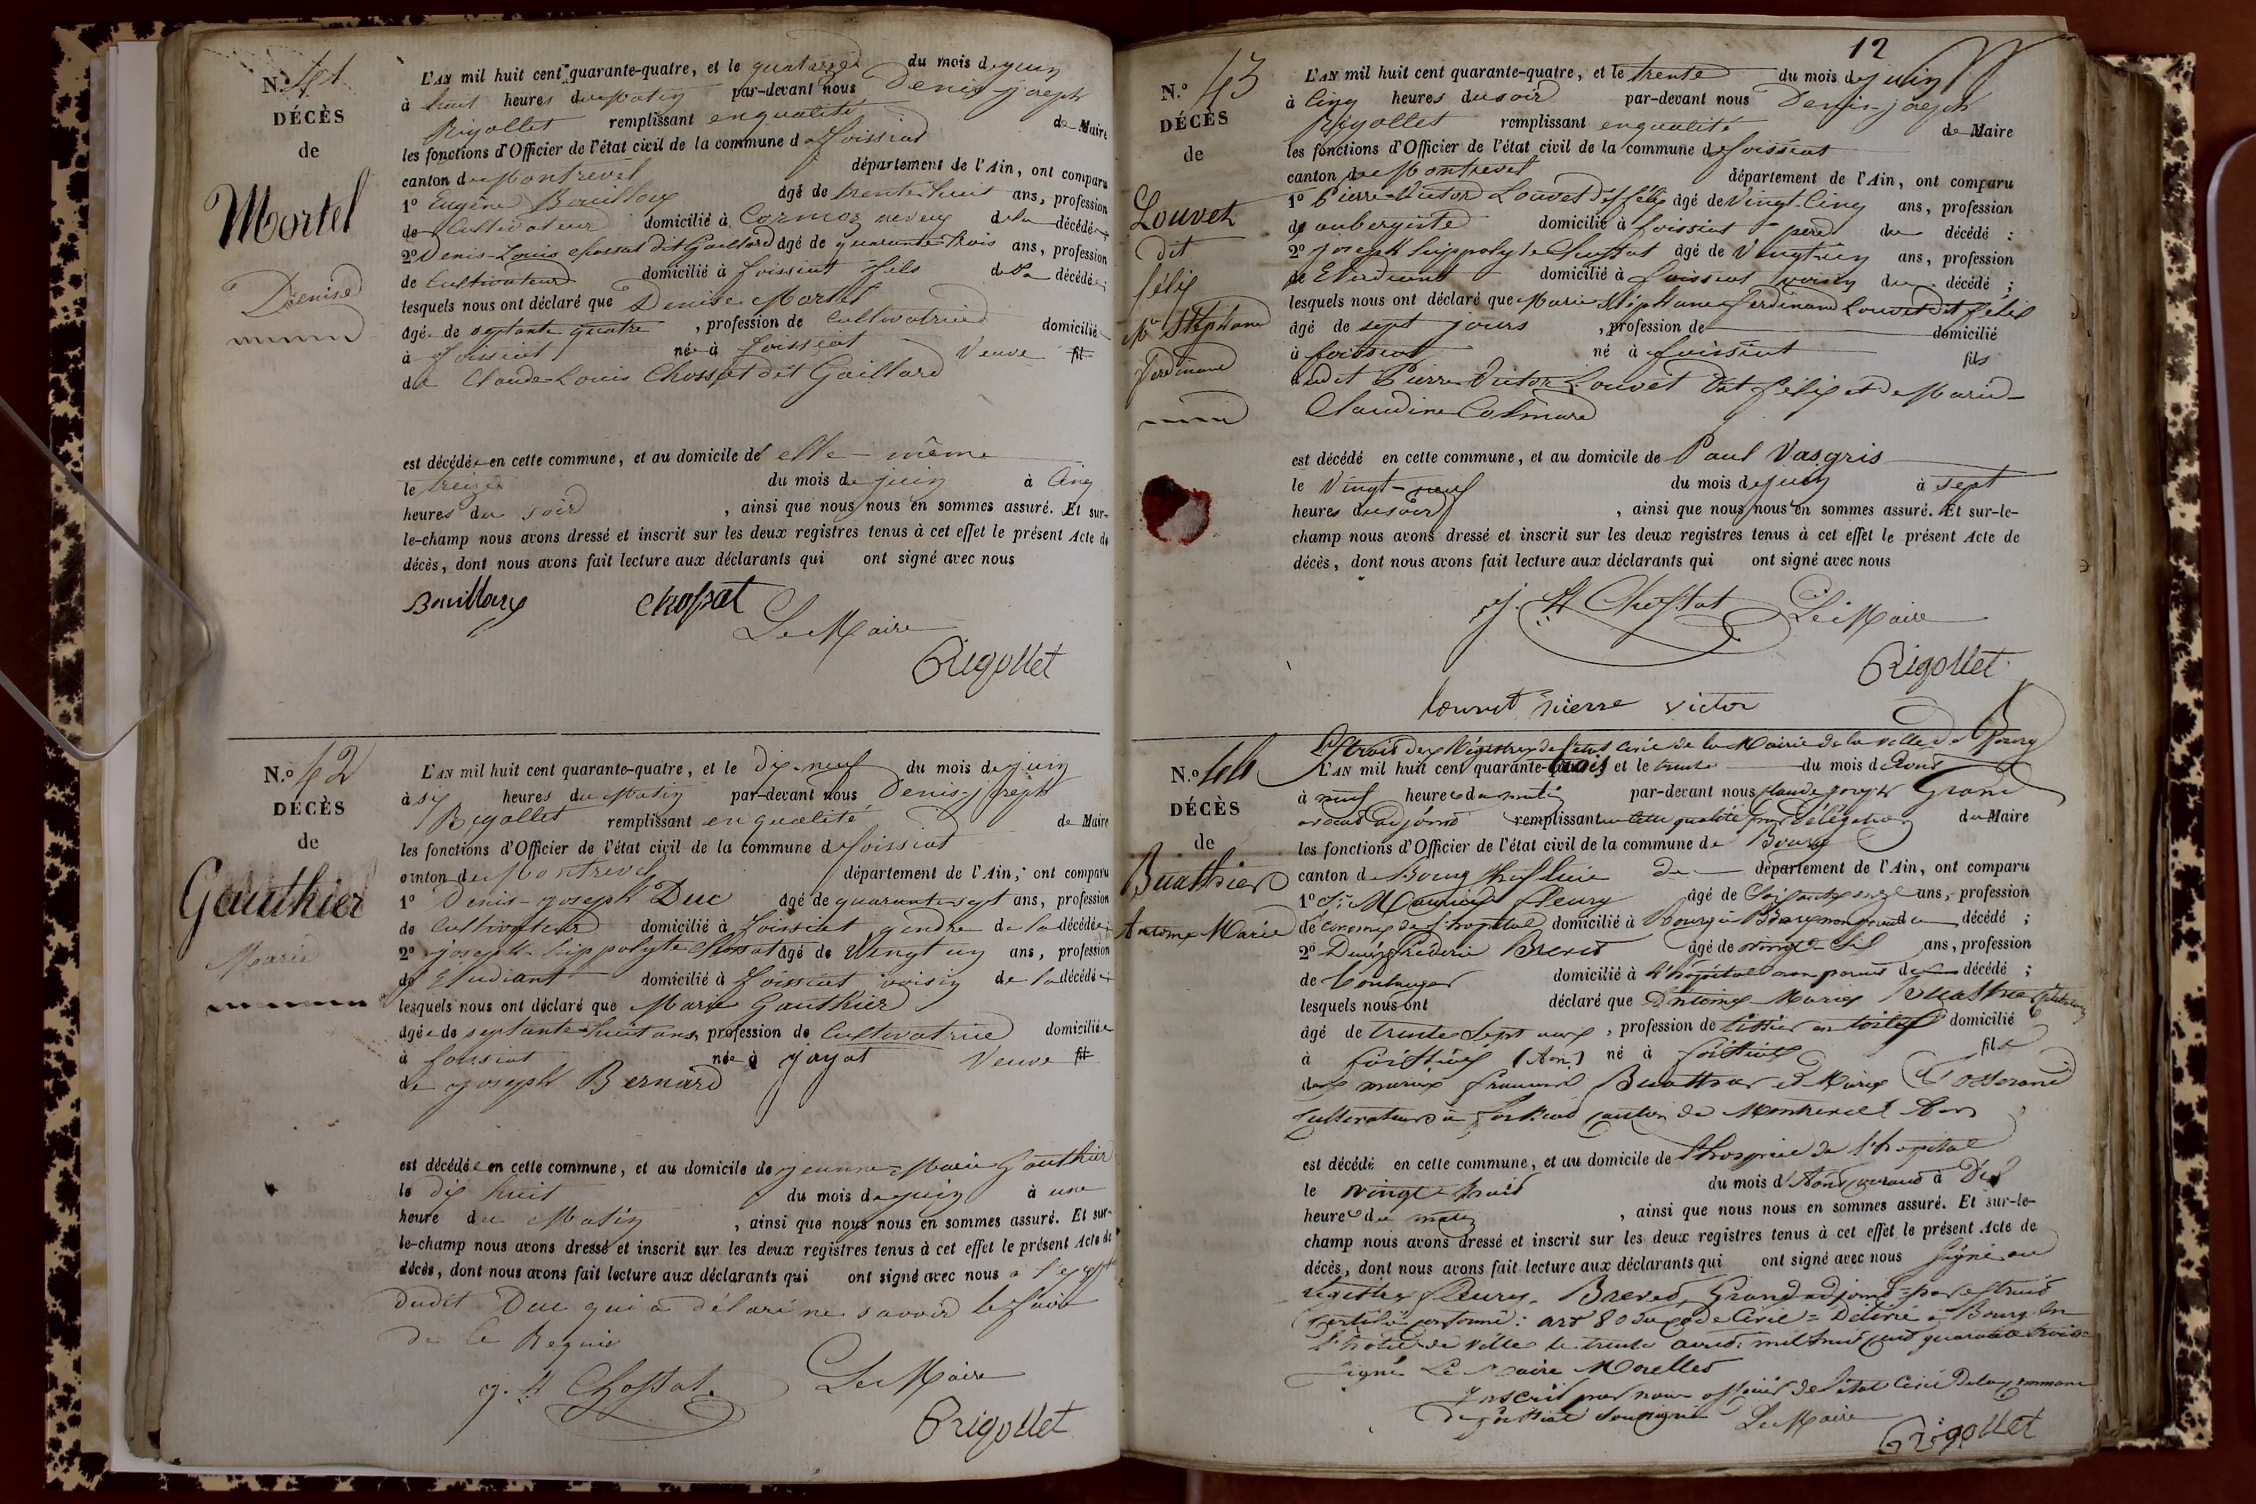 N.o 41
DÉCÈS
de
Mortel
Denise
L'AN mil huit cent quarante-quatre, et le quatorze du mois de juin
à huit heures du matin par-devant nous Denis-joseph
Rigollet remplissant en qualité de Maire
les fonctions d'Officier de l'état civil de la commune de foissiat
canton de Montrevel département de l'Ain, ont comparu
1o Eugène Bouilloux âgé de trente-huit ans, profession
de Cultivateur domicilié à Cormoz neveu de la décédée
2o Denis-Louis chossat dit Gaillard âgé de quarante trois ans, profession
de Cultivateur domicilié à foissiat fils de la décédée ;
lesquels nous ont déclaré que Denise Mortel
âgée de septante quatre , profession de Cultivatrice domiciliée
à foissiat née à foissiat Veuve fil
de Claude Louis Chossat dit Gaillard
est décédée en cette commune, et au domicile de elle-même
le treize du mois de juin à Cinq
heures du soir , ainsi que nous nous en sommes assuré. Et sur-
le-champ nous avons dressé et inscrit sur les deux registres tenus à cet effet le présent Acte de
décès, dont nous avons fait lecture aux déclarants qui ont signé avec nous
Bouilloux chossat
Le Maire
Rigollet
N.o 42
DÉCÈS
de
Gauthier
Marie
L'AN mil huit cent quarante-quatre, et le dix-neuf du mois de juin
à six heures du Matin par-devant nous Denis-joseph
Rigollet remplissant en qualité de Maire
les fonctions d'Officier de l'état civil de la commune de foissiat
canton de Montrevel département de l'Ain, ont comparu
1o Denis-joseph Duc âgé de quarante-sept ans, profession
de Cultivateur domicilié à foissiat gendre de la décédée ;
2o joseph-hippolyte Chossat âgé de Vingt un ans, profession
de Etudiant domicilié à foissiat voisin de la décédée ;
lesquels nous ont déclaré que Marie Gauthier
âgée de septante huit ans, profession de Cultivatrice domiciliée
à foissiat née à jayat Veuve fil
de joseph Bernard
est décédée en cette commune, et au domicile de jeanne-Marie Gauthier
le dix huit du mois de juin à une
heure du Matin , ainsi que nous nous en sommes assuré. Et sur-
le-champ nous avons dressé et inscrit sur les deux registres tenus à cet effet le présent Acte de
décès, dont nous avons fait lecture aux déclarants qui ont signé avec nous à l'exception
dudit Duc qui a déclaré ne savoir le faire
de ce Requis
j. h Chossat Le Maire
Rigollet
12
N.o 43
DÉCÈS
de
Louvet
dit
félix
Mie Stéphane
ferdinand
L'AN mil huit cent quarante-quatre, et le trente du mois de juin
à Cinq heures du soir par-devant nous Denis-joseph
Rigollet remplissant en qualité de Maire
les fonctions d'Officier de l'état civil de la commune de foissiat
canton de Montrevel département de l'Ain, ont comparu
1o Pierre-Victor Louvet dit félix âgé de Vingt-Cinq ans, profession
de aubergiste domicilié à foissiat père du décédé ;
2o joseph hippolyte Chossat âgé de Vingt-un ans, profession
de Etudiant domicilié à foissiat voisin du décédé ;
lesquels nous ont déclaré que Marie Stéphane ferdinand Louvet dit félix
âgé de sept jours , profession de domicilié
à foissiat né à foissiat fils
dudit Pierre Victor Louvet dit félix et de Marie-
Claudine Colmard
est décédé en cette commune, et au domicile de Paul Vasgris
le Vingt-neuf du mois de juin à sept
heures du soir , ainsi que nous nous en sommes assuré. Et sur-le-
champ nous avons dressé et inscrit sur les deux registres tenus à cet effet le présent Acte de
décès, dont nous avons fait lecture aux déclarants qui ont signé avec nous
j. h Chossat Le Maire
Rigollet
Louvet pierre victor
N.o 44
DÉCÈS
de
Buathier
Antoine Marie
Extrait des Registres de l'état Civil de la Mairie de la ville de Bourg
L'AN mil huit cent quarante-trois et le trente du mois d'avril
à neuf heures du matin par-devant nous Claude joseph Grand
avocat adjoint remplissant en cette qualité par délégation du Maire
les fonctions d'Officier de l'état civil de la commune de Bourg
canton de Bourg département de l'Ain, ont comparu
1o fleury âgé de ans, profession
de économe de l'hopital domicilié à Bourg non parent du décédé ;
2o frédéric Brevet âgé de vingt ans, profession
de boulanger domicilié à l'hopital non parent du décédé ;
lesquels nous ont déclaré que Antoine Marie Buathier
âgé de trente sept ans , profession de tissier en toiles domicilié
à foissiat (Ain) né à foissiat fils
des mariés Buathier et Marie
Cultivateurs à foissiat canton de Montrevel Ain
est décédé en cette commune, et au domicile de l'hospice de l'hopital
le vingt huit du mois d'Avril courant à Dix
heures du matin , ainsi que nous nous en sommes assuré. Et sur-le-
champ nous avons dressé et inscrit sur les deux registres tenus à cet effet le présent Acte de
décès, dont nous avons fait lecture aux déclarants qui ont signé avec nous signé au
registre fleury, Brevet, Grand adjoint = pour extrait
certifié conforme : art 80 du code Civil = Délivré à Bourg en
l'hotel de ville le trente avril mil huit cent quarante trois
signé Le Maire Morellet
Inscrit par nous officier de l'état Civil de la commune
de foissiat soussigné Le Maire
Rigollet